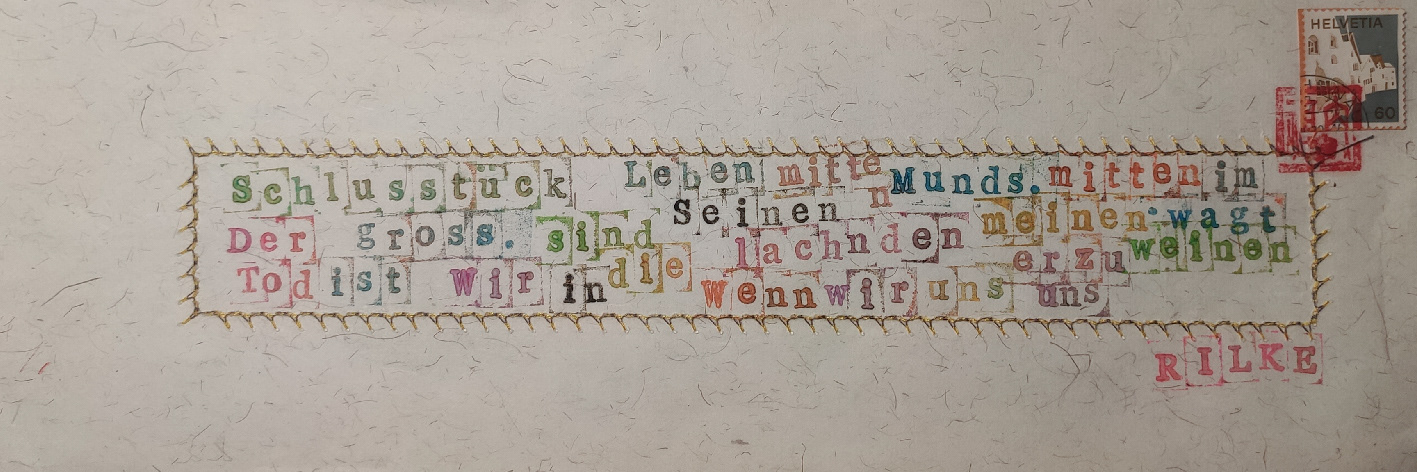 HELVETIA
60
Schlussstück Leben mitten Munds. mitten im
Der gross. sind Seinen lachnden meinen wagt
Tod ist Wir in die Wenn wir uns erzu weinen
uns
RILKE